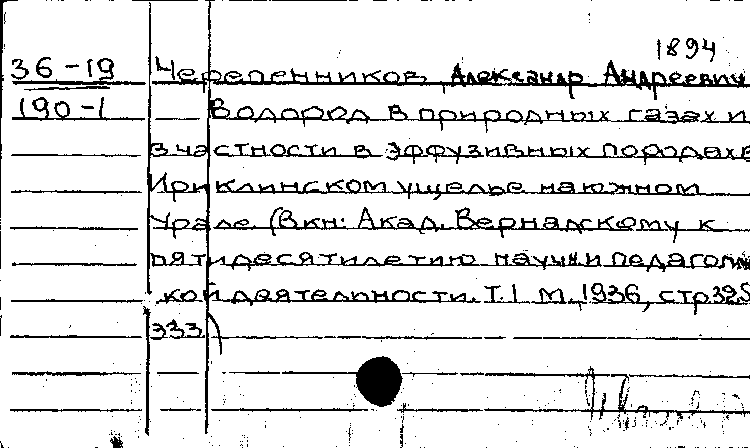 1894
36-19 Черепенников, Александр Андреевич
190-1 Водород в природных газах и
в частности в эффузивных породах в
Ириклинском ущелье на южном
Урале. (В кн: Акад. Вернадскому к
пятидесятилетию научн. и педагогич
кой деятельности. Т. I М., 1936, стр 325
333)